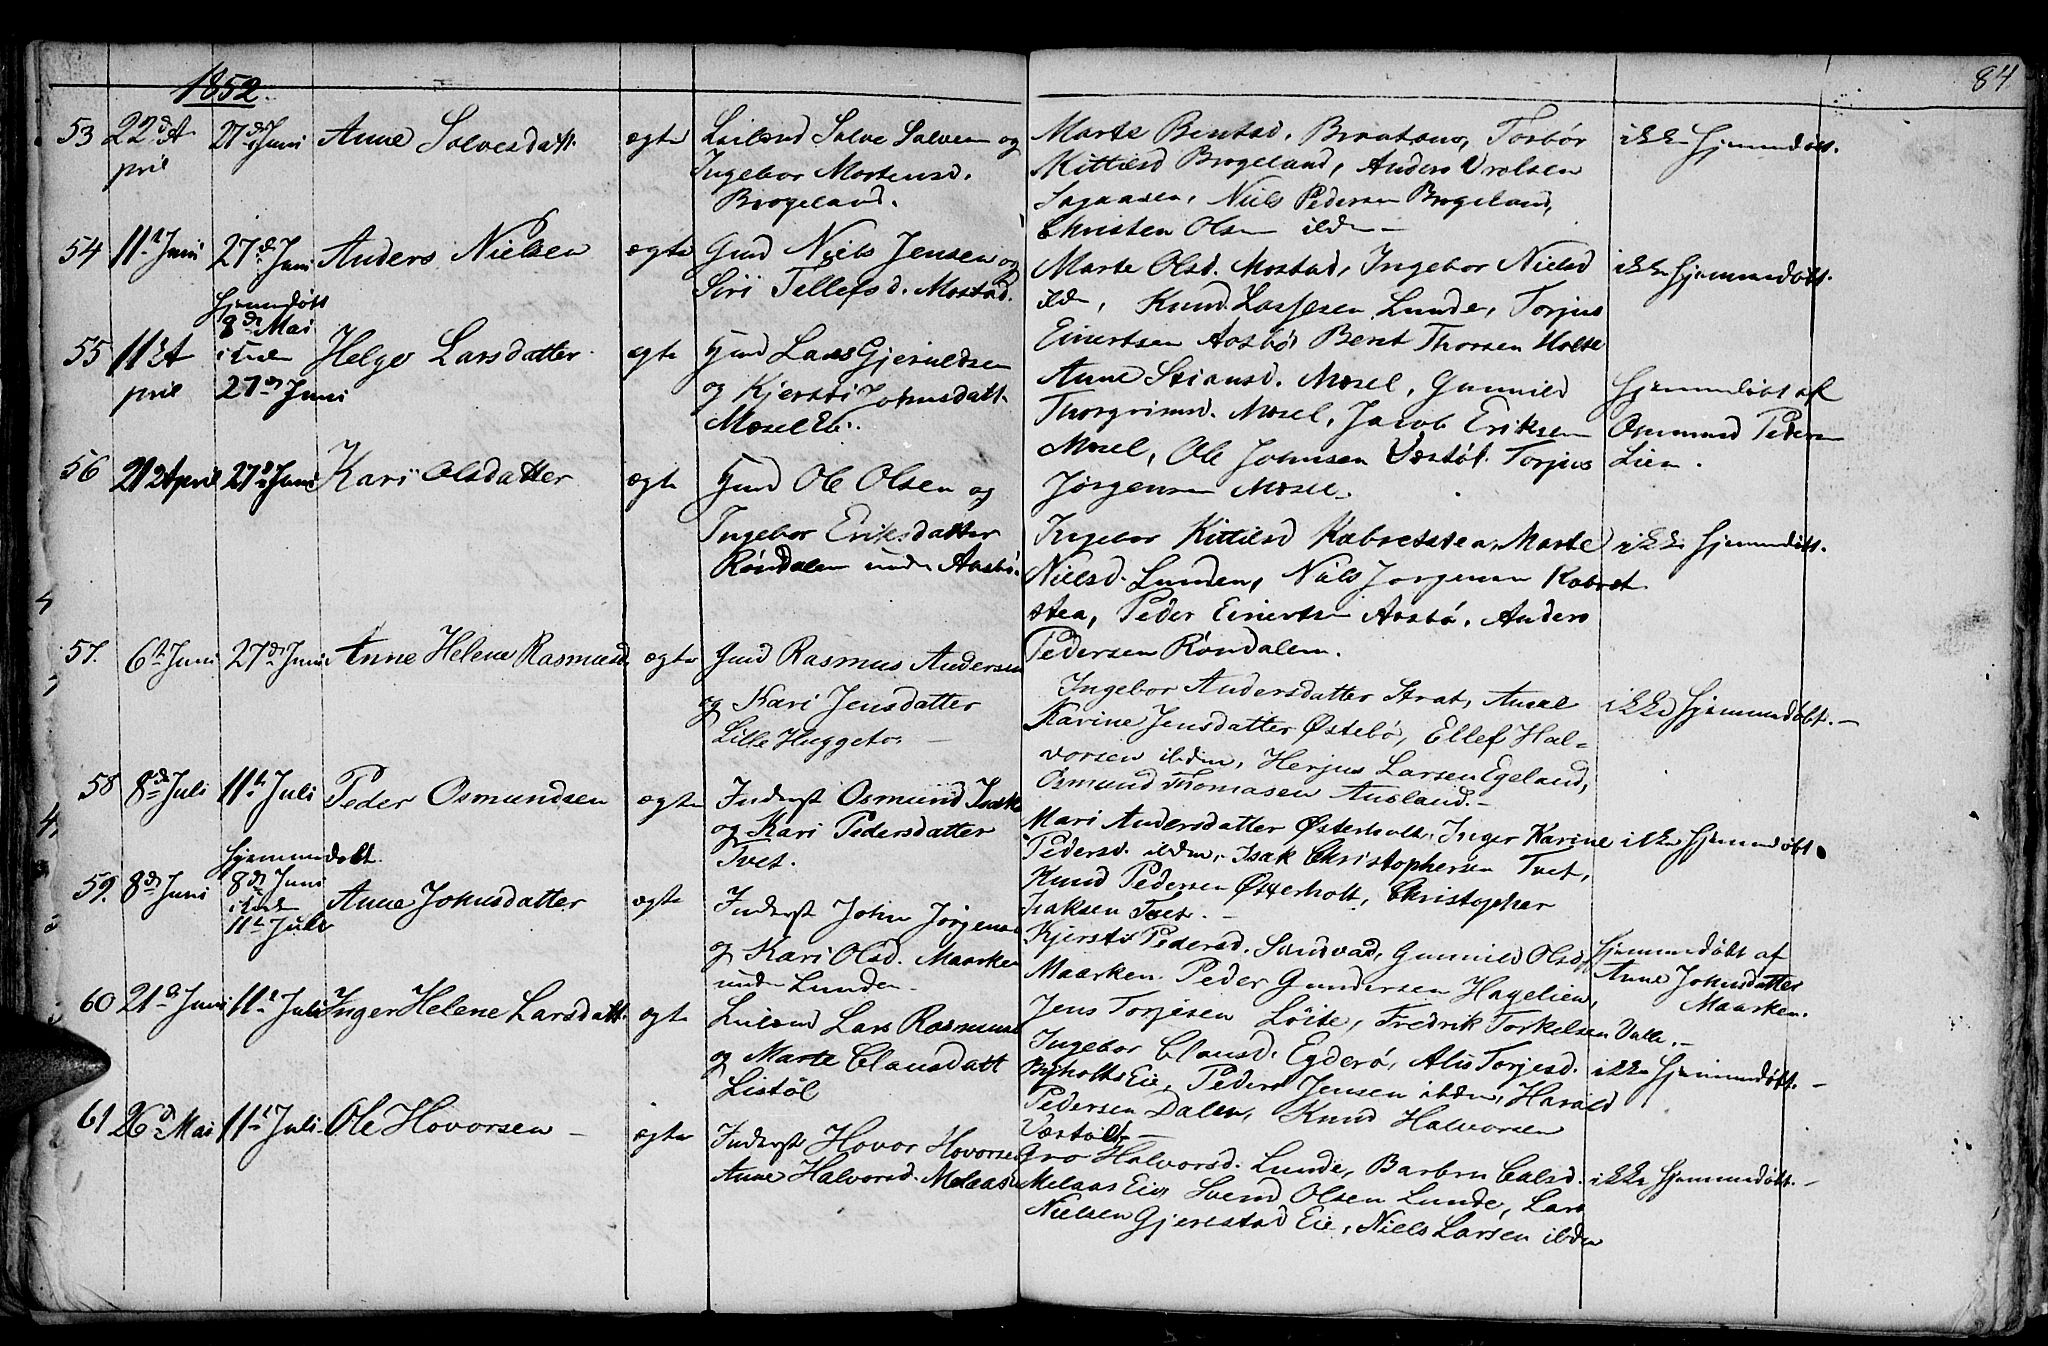 1852.
84
53 22de A 27de Juni Anne Solvesdatt. ægte Leilænd Salve Salvesen og
pril Ingebor Mortensd.
Brogeland.
Marte Bentsd. Brataas, Torbor ikke hjemmedøbt.
Kittilsd Brogeland, Anders Vrolsen
Sagaasen, Niels Pedersen Brogeland,
Christen Olsen ibdm –
54 11te Juni 27de Juni Anders Nielsen ægte Gmd Niels Jensen og
Siri Tellefsd. Mostad.
Marte Olsd. Mostad, Ingebor Nielsd ikke hjemmedøbt.
ibdm, Knud Lassesen Lunde, Torjus
Einertsen Aasbø Bent Thorsen Holte
55 11te A hjemmedøbt Helge Larsdatter. ægte Gmd Lars Gjeruldsen
pril 8de Mai og Kjersti Johnsdatt.
i Kirken Mosel Ei.
27de Juni
Anne Stiansd. Mosel, Gunnild hjemmedøbt af
Thorgrimsd. Mosel, Jacob Eriksen Osmund Pedersen
Mosel, Ole Johnsen Vestøl. Torjus Lien.
Jørgensen Mosel.
56 21 April 27de Juni Kari Olsdatter ægte Gmd Ole Olsen og
Ingebor Eriksdatter
Røndalen under Aasbø.
Ingebor Kittilsd Kabretstea, Marte ikke hjemmedøbt.
Nielsd. Lunden, Niels Jørgensen Kabret
stea, Peder Einertsen Aasbø, Anders
Pedersen Røndalen.
57. 6te Juni 27de Juni Anne Helene Rasmusd. ægte Gmd Rasmus Andersen
og Kari Jensdatter
Lille Hugge­to. –
Ingebor Andersdatter Strat, Anne ikke hjemmedøbt. –
Karine Jensdatter Østebø, Ellef Hal=
vorsen ibdm, Herjus Larsen Egeland,
Osmund Thomasen Ausland. –
58 8de Juli 11te Juli Peder Osmundsen ægte Inderst Osmund Isaks
og Kari Pedersdatter
Tvet.
Mari Andersdatter Østerholt, Inger Karine ikke hjemmedøbt.
Pedersd. ibdm, Isak Christophersen Tvet,
Knud Pedersen Østerholt, Christopher
Isaksen Tvet. –
59. 8de Juni hjemmedøbt. Anne Johnsdatter ægte Inderst John Jørgensen
8de Juni og Kari Olsd. Maarken
i Kirken under Lunden.
11te Juli
Kjersti Pedersd. Sandvad, Gunnild Olsd hjemmedøbt af
Maarken. Peder Gundersen Hagelien, Anne Johnsdatter
Jens Torjesen Løite, Fredrik Torkelsen Valle. – Maarken.
60 21de Juni 11te Juli Inger Helene Larsdatt. ægte Leilænd Lars Rasmus
og Marte Clausdatt
Listøl
Ingebor Clausd. Egderø, Alis Torjesd. ikke hjemmedøbt. –
Byholts Eie, Peder Jensen ibdm, Harald
Pedersen Dalen, Knud Halvorsen
Vestøl –
61 26de Mai 11te Juli Ole Hovorsen – ægte Inderst Hovor Hovorsen
Anne Halvorsd. Melaas
Gro Halvorsd. Lunde, Barbro Calsd. ikke hjemmedøbt. –
Melaas Eie Svend Olsen Lunde, Lars
Nielsen Gjerestad Eie, Niels Larsen ibdm